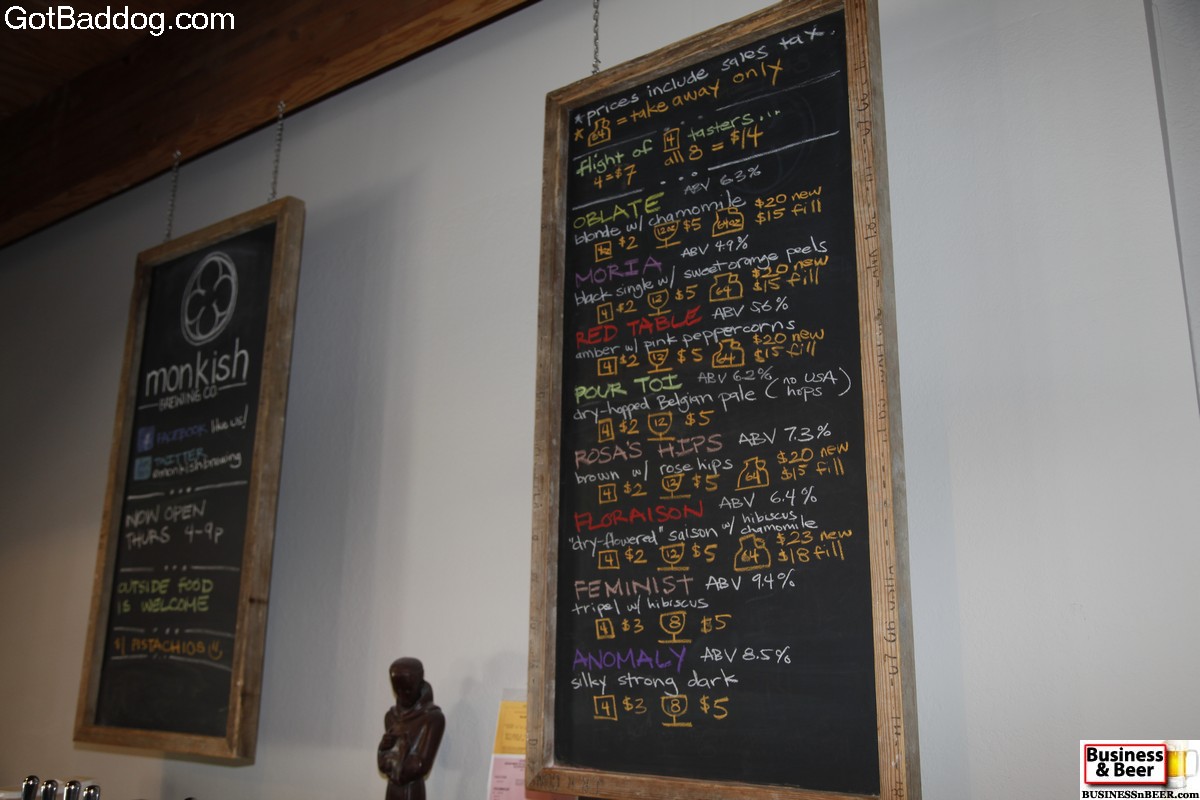 GotBaddog.com
monkish
BREWING CO
f FACEBOOK like us!
TWITTER
@monkishbrewing
NOW OPEN
THURS 4-9p
OUTSIDE FOOD
IS WELCOME
$1 PISTACHIOS
*prices include sales tax.
* 64 = take away only
flight of 4 tasters...
4=$7 all 8 = $14
OBLATE ABV 6.3%
blonde w/ chamomile
4oz $2 12oz $5 64oz $20 new
$15 fill
MORIA ABV 4.9%
black single w/ sweet orange peels
4 $2 12 $5 64 $20 new
$15 fill
RED TABLE ABV 5.6%
amber w/ pink peppercorns
4 $2 12 $5 64 $20 new
$15 fill
POUR TOI ABV 6.2%
dry-hopped Belgian pale (no USA hops)
4 $2 12 $5
ROSA'S HIPS ABV 7.3%
brown w/ rose hips
4 $2 12 $5 64 $20 new
$15 fill
FLORAISON ABV 6.4%
"dry-flowered" saison w/ hibiscus
chamomile
4 $2 12 $5 64 $23 new
$18 fill
FEMINIST ABV 9.4%
tripel w/ hibiscus
4 $3 8 $5
ANOMALY ABV 8.5%
silky strong dark
4 $3 8 $5
Business
& Beer
BUSINESSnBEER.com